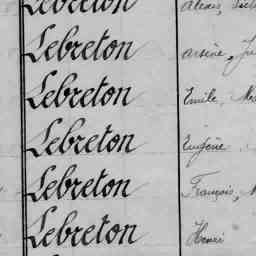 Lebreton Alexis,
Lebreton Arsène,
Lebreton Emile,
Lebreton Eugène
Lebreton François,
Lebreton Henri